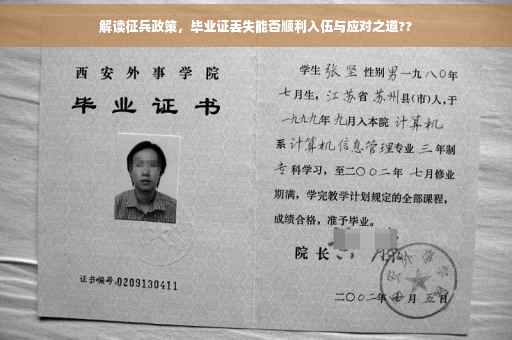 解读征兵政策，毕业证丢失能否顺利入伍与应对之道??
西安外事学院
毕业证书
证书编号:0209130411
学生 张坚 性别男一九八〇年
七月生，江苏省苏州县(市)人，于
一九九九年九月入本院 计算机
系 计算机信息管理专业 三 年制
专 科学习，至二〇〇二年 七月修业
期满，学完教学计划规定的全部课程，
成绩合格，准予毕业。
院长
二〇〇二年 七 月 五 日